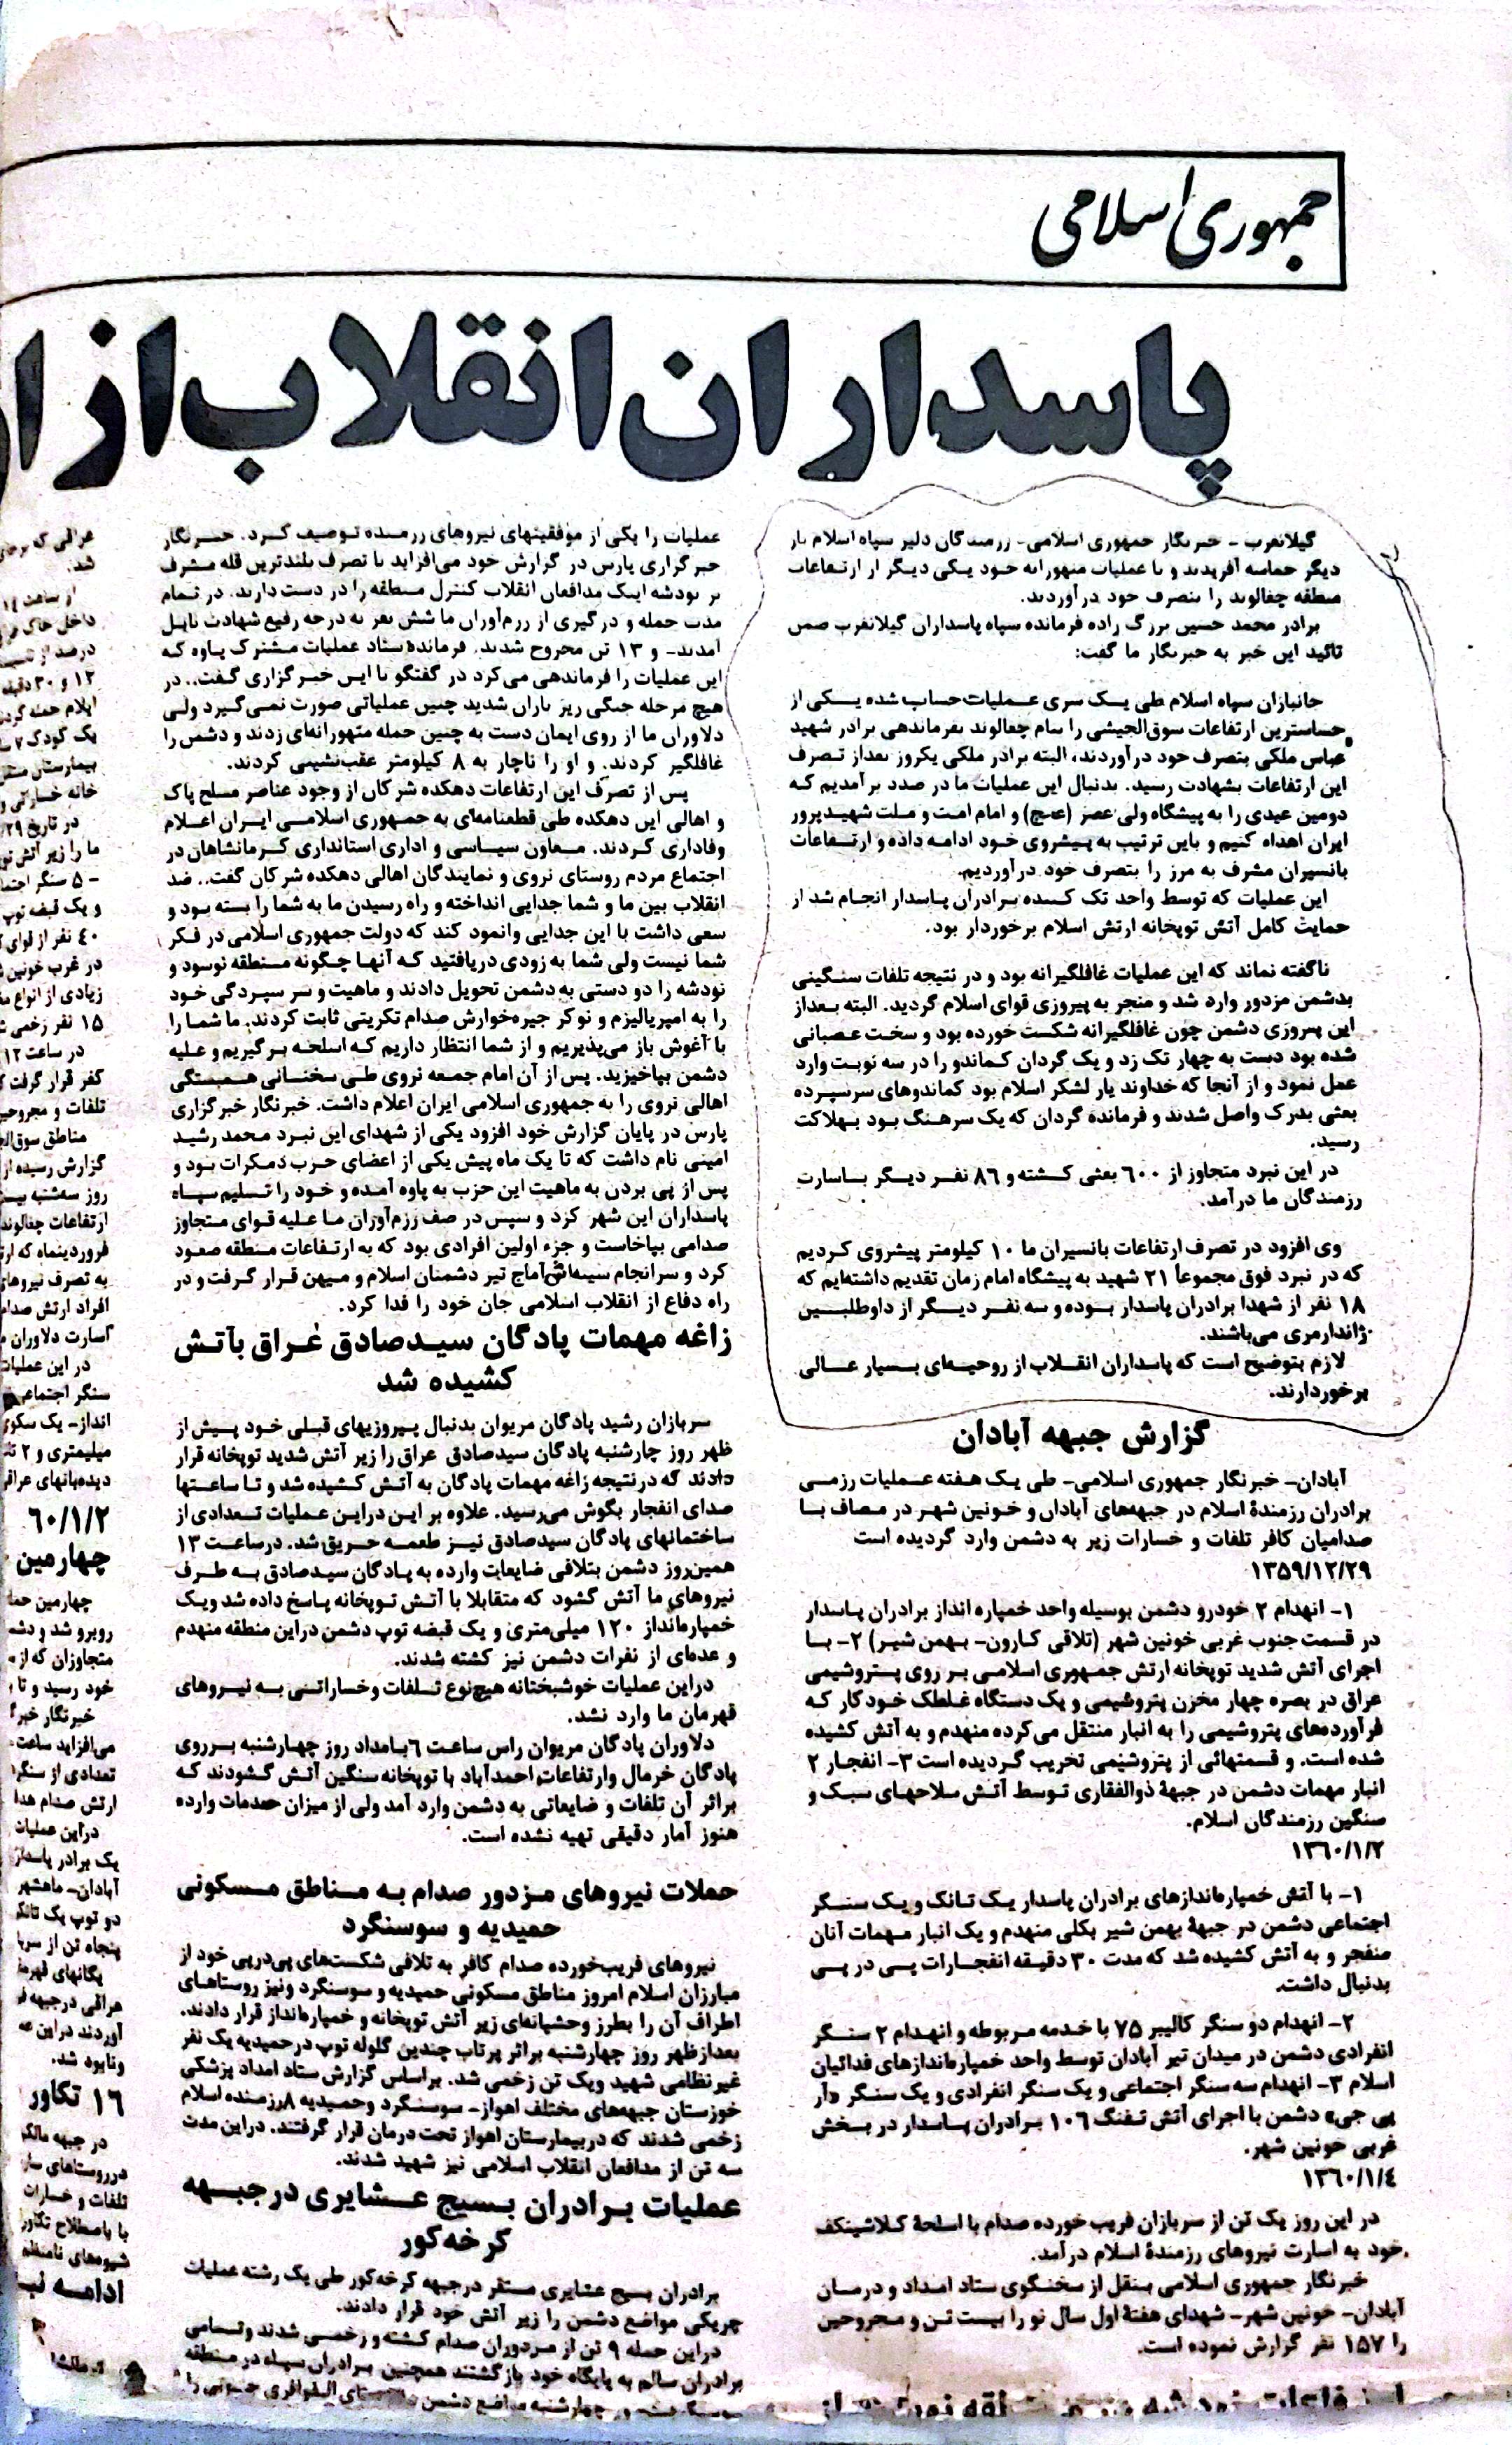 جمهوری اسلامی
پاسداران انقلاب از
گیلانغرب - خبرنگار جمهوری اسلامی- رزمندگان دلیر سپاه اسلام بار
دیگر حماسه آفریدند و با عملیات متهورانه خود یکی دیگر از ارتفاعات
منطقه چغالوند را بتصرف خود درآوردند.
برادر محمد حسین بزرگ زاده فرمانده سپاه پاسداران گیلانغرب ضمن
تائید این خبر به خبرنگار ما گفت:
جانبازان سپاه اسلام طی یک سری عملیات حساب شده یکی از
حساسترین ارتفاعات سوق‌الجیشی را بنام چغالوند بفرماندهی برادر شهید
عباس ملکی بتصرف خود درآوردند، البته برادر ملکی یکروز بعداز تصرف
این ارتفاعات بشهادت رسید. بدنبال این عملیات ما در صدد برآمدیم که
دومین عیدی را به پیشگاه ولی عصر (عج) و امام امت و ملت شهیدپرور
ایران اهداء کنیم و باین ترتیب به پیشروی خود ادامه داده و ارتفاعات
بانسیران مشرف به مرز را بتصرف خود درآوردیم.
این عملیات که توسط واحد تک کننده برادران پاسدار انجام شد از
حمایت کامل آتش توپخانه ارتش اسلام برخوردار بود.
ناگفته نماند که این عملیات غافلگیرانه بود و در نتیجه تلفات سنگینی
بدشمن مزدور وارد شد و منجر به پیروزی قوای اسلام گردید. البته بعداز
این پیروزی دشمن چون غافلگیرانه شکست خورده بود و سخت عصبانی
شده بود دست به چهار تک زد و یک گردان کماندو را در سه نوبت وارد
عمل نمود و از آنجا که خداوند یار لشکر اسلام بود کماندوهای سرسپرده
بعثی بدرک واصل شدند و فرمانده گردان که یک سرهنگ بود بهلاکت
رسید.
در این نبرد متجاوز از ۶۰۰ بعثی کشته و ۸۶ نفر دیگر باسارت
رزمندگان ما درآمد.
وی افزود در تصرف ارتفاعات بانسیران ما ۱۰ کیلومتر پیشروی کردیم
که در نبرد فوق مجموعاً ۲۱ شهید به پیشگاه امام زمان تقدیم داشته‌ایم که
۱۸ نفر از شهدا برادران پاسدار بوده و سه نفر دیگر از داوطلبین
ژاندارمری می‌باشند.
لازم بتوضیح است که پاسداران انقلاب از روحیه‌ای بسیار عالی
برخوردارند.
گزارش جبهه آبادان
آبادان- خبرنگار جمهوری اسلامی- طی یک هفته عملیات رزمی
برادران رزمندهٔ اسلام در جبهه‌های آبادان و خونین شهر در مصاف با
صدامیان کافر تلفات و خسارات زیر به دشمن وارد گردیده است
۱۳۵۹/۱۲/۲۹
۱- انهدام ۲ خودرو دشمن بوسیله واحد خمپاره انداز برادران پاسدار
در قسمت جنوب غربی خونین شهر (تلاقی کارون- بهمن شیر) ۲- با
اجرای آتش شدید توپخانه ارتش جمهوری اسلامی بر روی پتروشیمی
عراق در بصره چهار مخزن پتروشیمی و یک دستگاه غلطک خودکار که
فرآورده‌های پتروشیمی را به انبار منتقل می‌کرده منهدم و به آتش کشیده
شده است. و قسمتهائی از پتروشیمی تخریب گردیده است ۳- انفجار ۲
انبار مهمات دشمن در جبههٔ ذوالفقاری توسط آتش سلاحهای سبک و
سنگین رزمندگان اسلام.
۱۳۶۰/۱/۲
۱- با آتش خمپاره‌اندازهای برادران پاسدار یک تانک و یک سنگر
اجتماعی دشمن در جبههٔ بهمن شیر بکلی منهدم و یک انبار مهمات آنان
منفجر و به آتش کشیده شد که مدت ۳۰ دقیقه انفجارات پی در پی
بدنبال داشت.
۲- انهدام دو سنگر کالیبر ۷۵ با خدمه مربوطه و انهدام ۲ سنگر
انفرادی دشمن در میدان تیر آبادان توسط واحد خمپاره‌اندازهای فدائیان
اسلام ۳- انهدام سه سنگر اجتماعی و یک سنگر انفرادی و یک سنگر «آر
پی جی» دشمن با اجرای آتش تفنگ ۱۰۶ برادران پاسدار در بخش
غربی خونین شهر.
۱۳۶۰/۱/٤
در این روز یک تن از سربازان فریب خورده صدام با اسلحهٔ کلاشینکف
خود به اسارت نیروهای رزمندهٔ اسلام درآمد.
خبرنگار جمهوری اسلامی بنقل از سخنگوی ستاد امداد و درمان
آبادان- خونین شهر- شهدای هفتهٔ اول سال نو را بیست تن و مجروحین
را ۱۵۷ نفر گزارش نموده است.
عملیات را یکی از موفقیتهای نیروهای رزمنده توصیف کرد. خبرنگار
خبرگزاری پارس در گزارش خود می‌افزاید با تصرف بلندترین قله مشرف
بر نودشه اینک مدافعان انقلاب کنترل منطقه را در دست دارند. در تمام
مدت حمله و درگیری از رزم‌آوران ما شش نفر به درجه رفیع شهادت نایل
آمدند- و ۱۳ تن مجروح شدند. فرمانده ستاد عملیات مشترک پاوه که
این عملیات را فرماندهی می‌کرد در گفتگو با این خبرگزاری گفت.. در
هیچ مرحله جنگی ریز باران شدید چنین عملیاتی صورت نمی‌گیرد ولی
دلاوران ما از روی ایمان دست به چنین حمله متهورانه‌ای زدند و دشمن را
غافلگیر کردند. و او را ناچار به ۸ کیلومتر عقب‌نشینی کردند.
پس از تصرف این ارتفاعات دهکده شرکان از وجود عناصر مسلح پاک
و اهالی این دهکده طی قطعنامه‌ای به جمهوری اسلامی ایران اعلام
وفاداری کردند. معاون سیاسی و اداری استانداری کرمانشاهان در
اجتماع مردم روستای نروی و نمایندگان اهالی دهکده شرکان گفت.. ضد
انقلاب بین ما و شما جدایی انداخته و راه رسیدن ما به شما را بسته بود و
سعی داشت با این جدایی وانمود کند که دولت جمهوری اسلامی در فکر
شما نیست ولی شما به زودی دریافتید که آنها چگونه منطقه نوسود و
نودشه را دو دستی به دشمن تحویل دادند و ماهیت و سر سپردگی خود
را به امپریالیزم و نوکر جیره‌خوارش صدام تکریتی ثابت کردند. ما شما را
با آغوش باز می‌پذیریم و از شما انتظار داریم که اسلحه برگیریم و علیه
دشمن بپاخیزید. پس از آن امام جمعه نروی طی سخنانی همبستگی
اهالی نروی را به جمهوری اسلامی ایران اعلام داشت. خبرنگار خبرگزاری
پارس در پایان گزارش خود افزود یکی از شهدای این نبرد محمد رشید
امینی نام داشت که تا یک ماه پیش یکی از اعضای حزب دمکرات بود و
پس از پی بردن به ماهیت این حزب به پاوه آمده و خود را تسلیم سپاه
پاسداران این شهر کرد و سپس در صف رزم‌آوران ما علیه قوای متجاوز
صدامی بپاخاست و جزء اولین افرادی بود که به ارتفاعات منطقه صعود
کرد و سرانجام سینه‌اش آماج تیر دشمنان اسلام و میهن قرار گرفت و در
راه دفاع از انقلاب اسلامی جان خود را فدا کرد.
زاغه مهمات پادگان سیدصادق عراق بآتش
کشیده شد
سربازان رشید پادگان مریوان بدنبال پیروزیهای قبلی خود پیش از
ظهر روز چارشنبه پادگان سیدصادق عراق را زیر آتش شدید توپخانه قرار
دادند که درنتیجه زاغه مهمات پادگان به آتش کشیده شد و تا ساعتها
صدای انفجار بگوش می‌رسید. علاوه بر این دراین عملیات تعدادی از
ساختمانهای پادگان سیدصادق نیز طعمه حریق شد. درساعت ۱۳
همین‌روز دشمن بتلافی ضایعات وارده به پادگان سیدصادق به طرف
نیروهای ما آتش گشود که متقابلا با آتش توپخانه پاسخ داده شد ویک
خمپاره‌انداز ۱۲۰ میلی‌متری و یک قبضه توپ دشمن دراین منطقه منهدم
و عده‌ای از نفرات دشمن نیز کشته شدند.
دراین عملیات خوشبختانه هیچ‌نوع تلفات وخساراتی به نیروهای
قهرمان ما وارد نشد.
دلاوران پادگان مریوان راس ساعت ۶بامداد روز چهارشنبه برروی
پادگان خرمال وارتفاعات احمدآباد با توپخانه سنگین آتش گشودند که
براثر آن تلفات و ضایعاتی به دشمن وارد آمد ولی از میزان صدمات وارده
هنوز آمار دقیقی تهیه نشده است.
حملات نیروهای مزدور صدام به مناطق مسکونی
حمیدیه و سوسنگرد
نیروهای فریب‌خورده صدام کافر به تلافی شکست‌های پی‌درپی خود از
مبارزان اسلام امروز مناطق مسکونی حمیدیه و سوسنگرد ونیز روستاهای
اطراف آن را بطرز وحشیانه‌ای زیر آتش توپخانه و خمپاره‌انداز قرار دادند.
بعدازظهر روز چهارشنبه براثر پرتاب چندین گلوله توپ درحمیدیه یک نفر
غیرنظامی شهید ویک تن زخمی شد. براساس گزارش ستاد امداد پزشکی
خوزستان جبهه‌های مختلف اهواز- سوسنگرد وحمیدیه ۸رزمنده اسلام
زخمی شدند که دربیمارستان اهواز تحت درمان قرار گرفتند. دراین مدت
سه تن از مدافعان انقلاب اسلامی نیز شهید شدند.
عملیات برادران بسیج عشایری درجبهه
کرخه‌کور
برادران بسیج عشایری مستقر درجبهه کرخه‌کور طی یک رشته عملیات
چریکی مواضع دشمن را زیر آتش خود قرار دادند.
دراین حمله ۹ تن از مزدوران صدام کشته و زخمی شدند وتمامی
برادران سالم به پایگاه خود بازگشتند همچنین برادران سپاه در منطقه
چهارشنبه مواضع دشمن
عراقی که
شد.
از ساعت ۱٤
داخل خاک
درصد از
۱۲ و ۳۰ دقیقه
ایلام حمله
یک کودک ۷
بیمارستان
خانه خساراتی و
در تاریخ ۲۹
ما را زیر آتش
- ۵ سنگر
و یک قبضه توپ
٤۰ نفر از قوای
در غرب خونین
زیادی از انواع
۱۵ نفر زخمی
در ساعت ۱۲
کفر قرار گرفت
تلفات و
مناطق
گزارش رسیده از
روز سه‌شنبه
ارتفاعات چغالوند
فروردینماه که
به تصرف
افراد ارتش
اسارت دلاوران
در این عملیات
سنگر
انداز- یک
میلیمتری و ۲
دیده‌بانهای
۶۰/۱/۲
چهارمین
چهارمین
روبرو شد و
متجاوزان که از
خود رسید و تا
خبرنگار
می‌افزاید ساعت
تعدادی از
ارتش صدام
دراین عملیات
یک برادر
آبادان- ماهشهر
دو توپ یک
پنجاه تن از
یگانهای
عراقی درجبهه
آوردند دراین
ونابود شد.
۱۶ تکاور
در جبهه
درروستاهای
تلفات و خسارات
با باصطلاح تکاور
شیوه‌های
ادامه